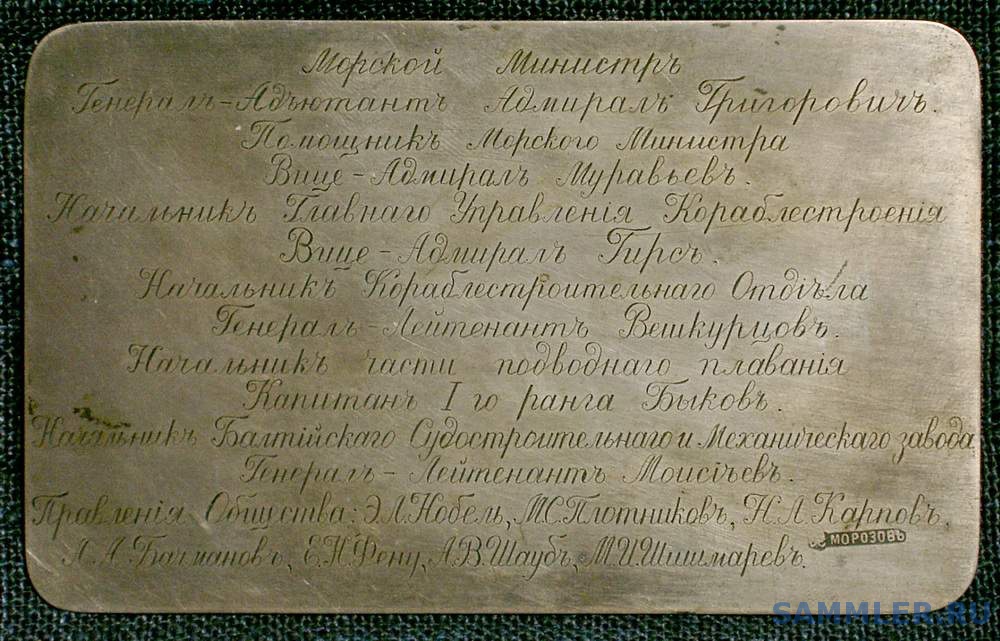 Морской Министръ
Генералъ-Адъютантъ Адмиралъ Григоровичъ.
Помощникъ Морского Министра
Вице-Адмиралъ Муравьевъ.
Начальникъ Главнаго Управленія Кораблестроенія
Вице-Адмиралъ Гирсъ.
Начальникъ Кораблестроительнаго Отдѣла
Генералъ-Лейтенантъ Вешкурцовъ.
Начальникъ части подводнаго плаванія
Капитанъ I го ранга Быковъ.
Начальникъ Балтійскаго Судостроительнаго и Механическаго завода
Генералъ-Лейтенантъ Моисѣевъ.
Правленія Общества: Э.Л.Нобель, М.С.Плотниковъ, Н.Л.Карповъ,
Бачмановъ, Е.Н.Фену, А.В.Шаубъ, М.И.Шишмаревъ.
МОРОЗОВЪ
SAMMLER.RU